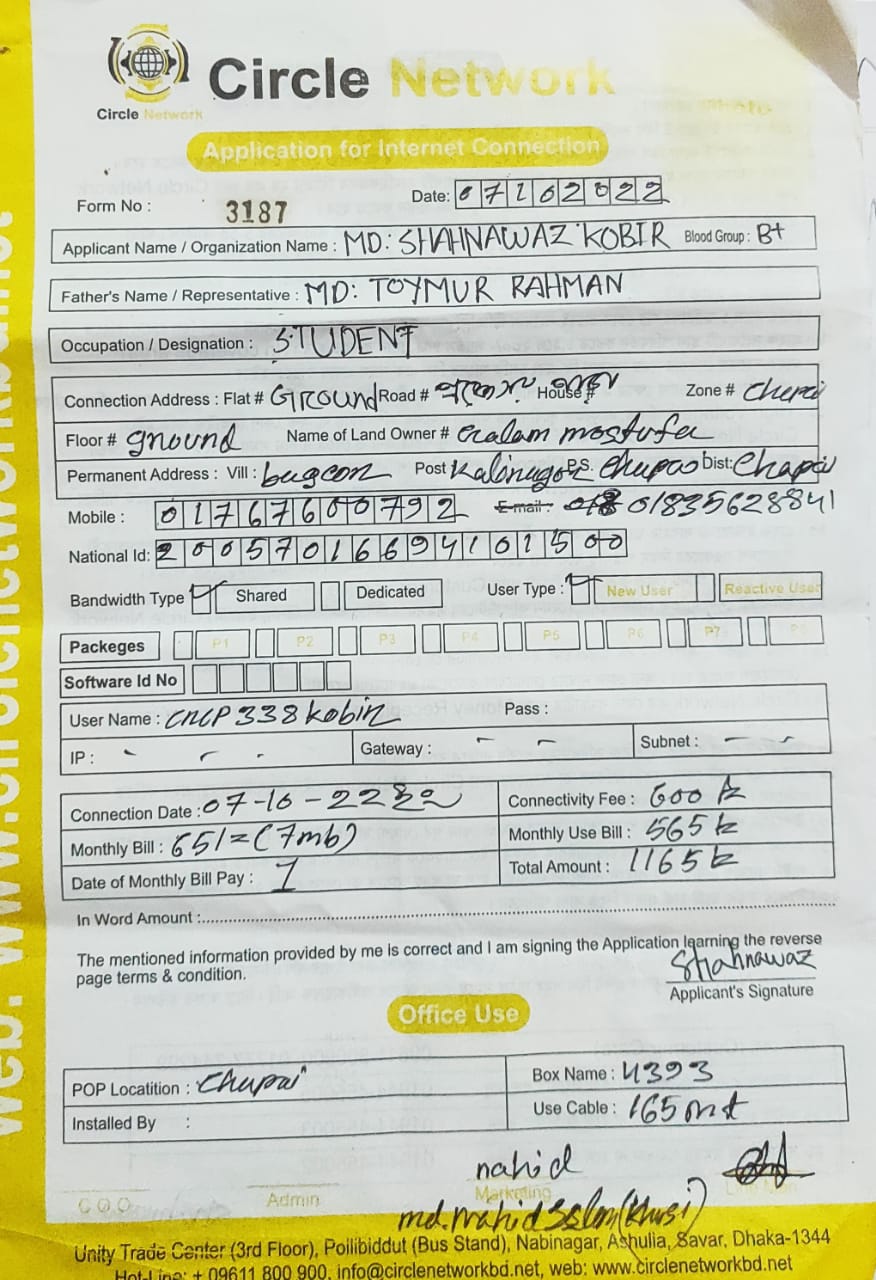 Circle Network
Circle Network
Application for Internet Connection
Form No : 3187 Date: 07102022
Applicant Name / Organization Name : MD: SHAHNAWAZ KOBIR Blood Group : B+
Father's Name / Representative : MD: TOYMUR RAHMAN
Occupation / Designation : STUDENT
Connection Address : Flat # Ground Road # House # Zone # Chapai
Floor # ground Name of Land Owner # Golam mostofa
Permanent Address : Vill : Post P.S. Chapai Dist: Chapai
Mobile : 01767600792 E-mail : 01835628841
National Id: 20057016694101500
Bandwidth Type Shared Dedicated User Type : New User Reactive User
Packeges P1 P2 P3 P4 P5 P6 P7 P8
Software Id No
User Name : CNCP338kobir Pass :
IP : - - - Gateway : - - Subnet : - -
Connection Date : 07-10-22 Connectivity Fee : 600 tk
Monthly Bill : 651= (7mb) Monthly Use Bill : 565 tk
Date of Monthly Bill Pay : 1 Total Amount : 1165 tk
In Word Amount :
The mentioned information provided by me is correct and I am signing the Application learning the reverse
page terms & condition.
Shahnawaz
Applicant's Signature
Office Use
POP Locatition : Chapai Box Name : 4393
Installed By : Use Cable : 165 mt
nahid
COO Admin Marketing Line Man
Unity Trade Center (3rd Floor), Pollibiddut (Bus Stand), Nabinagar, Ashulia, Savar, Dhaka-1344
Hot-Line: + 09611 800 900, info@circlenetworkbd.net, web: www.circlenetworkbd.net
web: www.circlenetworkbd.net